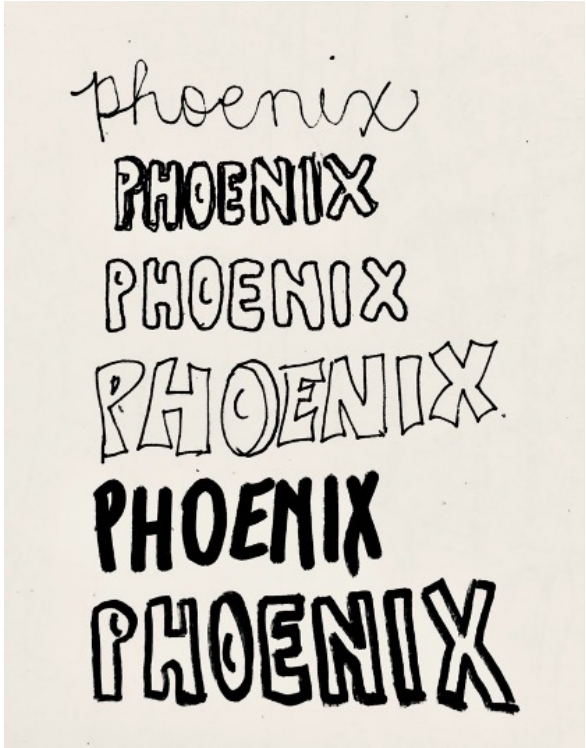 phoenix
PHOENIX
PHOENIX
PHOENIX
PHOENIX
PHOENIX